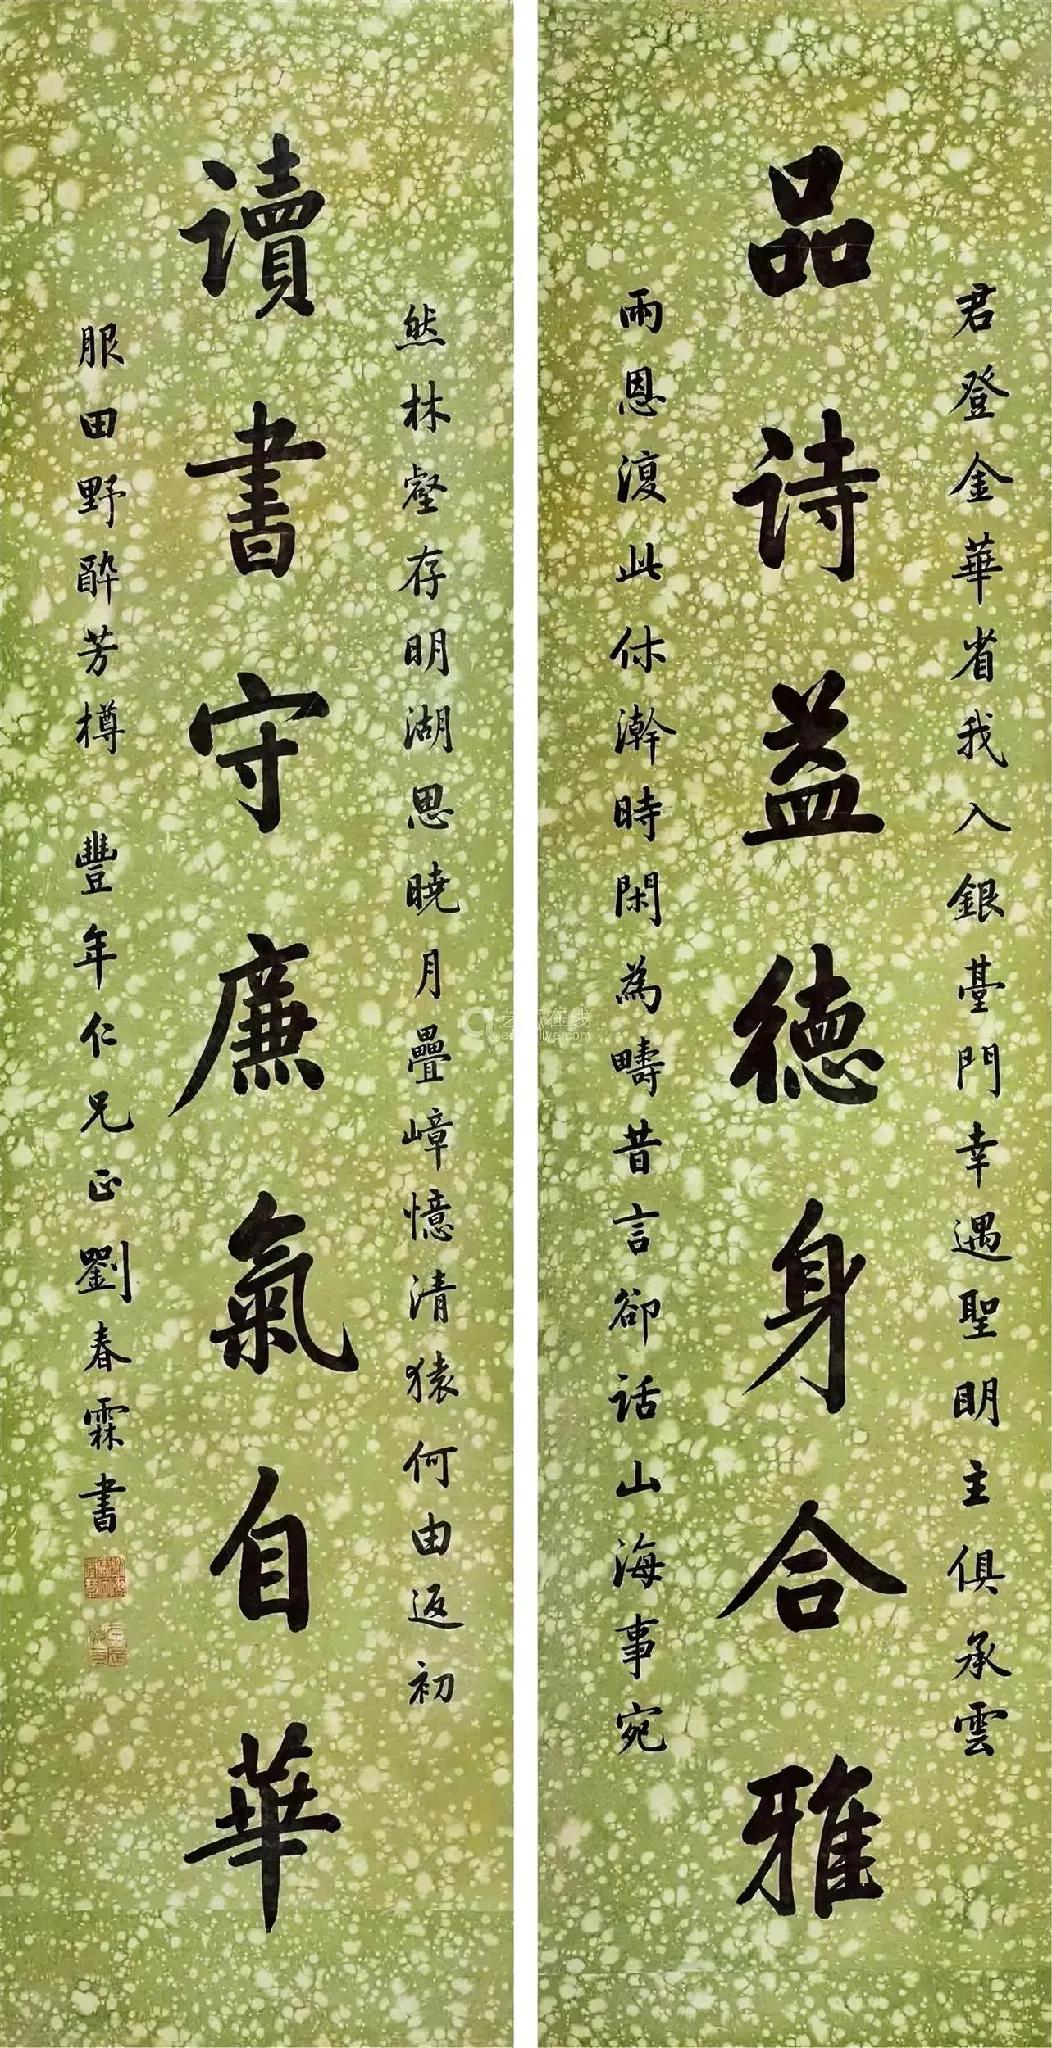 君登金華省我入銀臺門幸遇聖明主俱承雲
品詩益德身合雅
雨恩復此休澣時閑為疇昔言卻話山海事宛
然林壑存明湖思曉月疊嶂憶清猿何由返初
讀書守廉氣自華
服田野醉芳樽 豐年仁兄正劉春霖書
在线